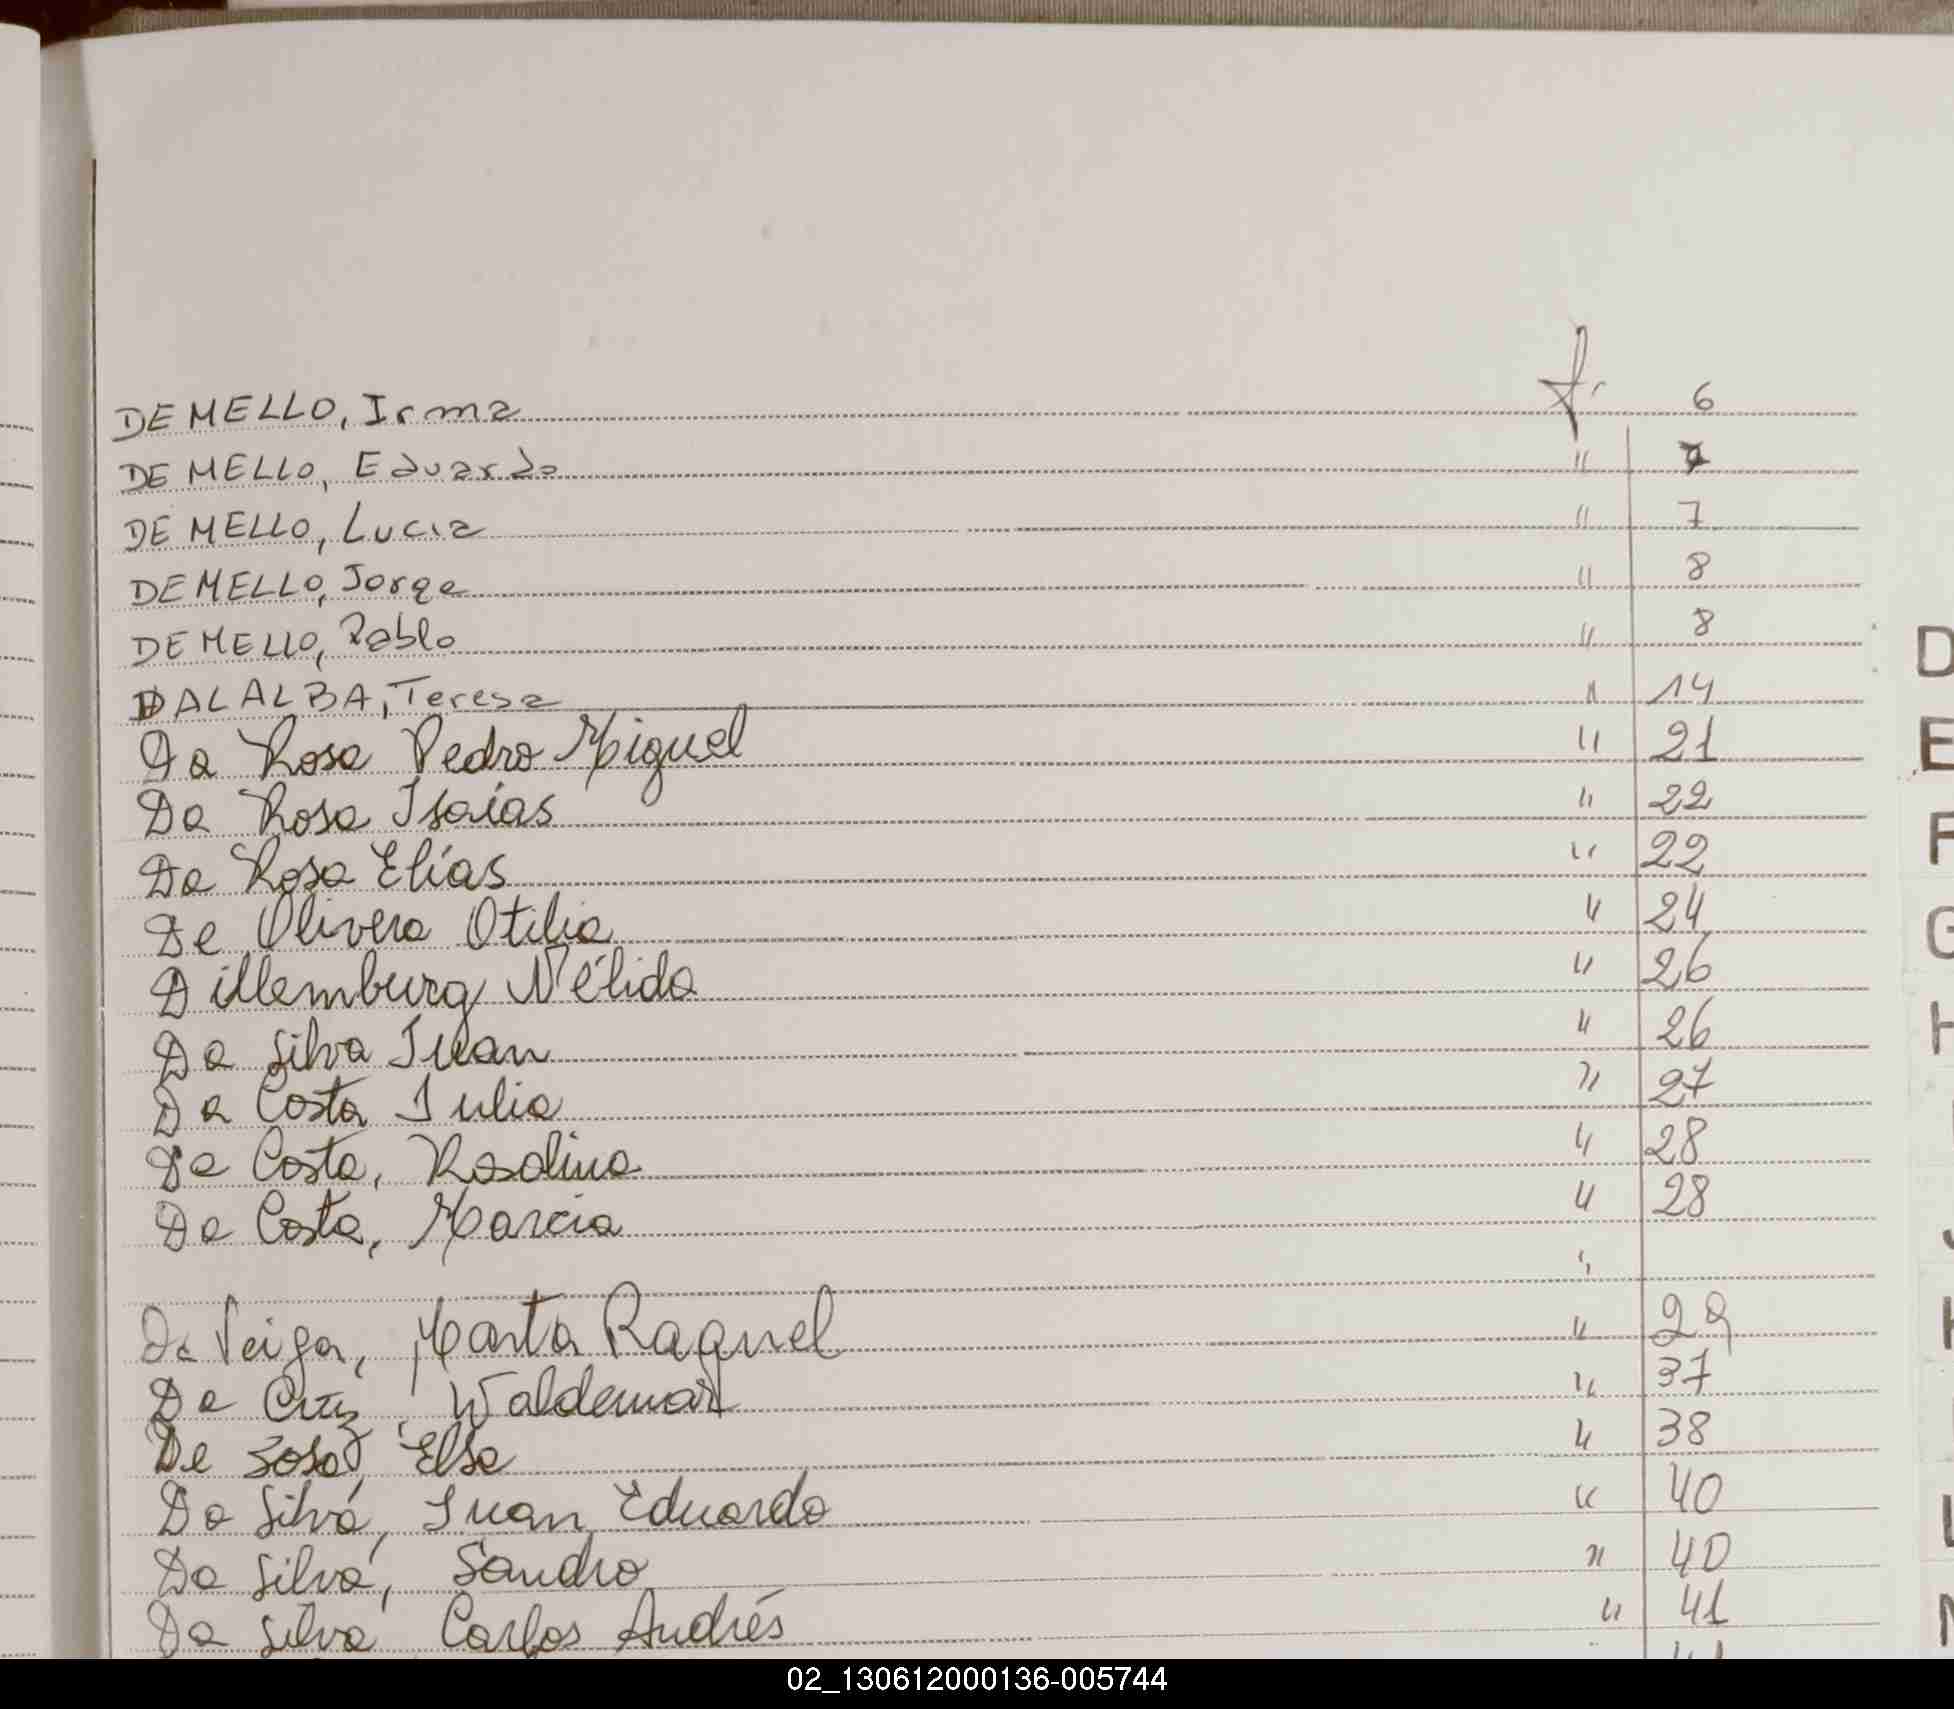 f. 6
DE MELLO, Irma
DE MELLO, Eduardo " 7
DE MELLO, Lucia " 7
DE MELLO, Jorge " 8
DE MELLO, Pablo " 8
DALALBA, Teresa " 14
Da Rosa Pedro Miguel " 21
Da Rosa Isaías " 22
Da Rosa Elías " 22
De Olivera Otilia " 24
Dillemburg Nélida " 26
Da Silva Juan " 26
Da Costa Julia " 27
Da Costa, Rosalina " 28
Da Costa, Marcia " 28
"
Da Veiga, Marta Raquel " 29
Da Cruz, Waldemar " 37
De Sosa, Elsa " 38
Da Silva, Juan Eduardo " 40
Da Silva, Sandro " 40
Da Silva Carlos Andrés " 41
D
E
F
G
H
J
K
L
02_130612000136-005744